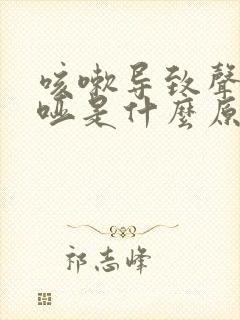 咳嗽导致聲
哑是什麼原
祁志峰